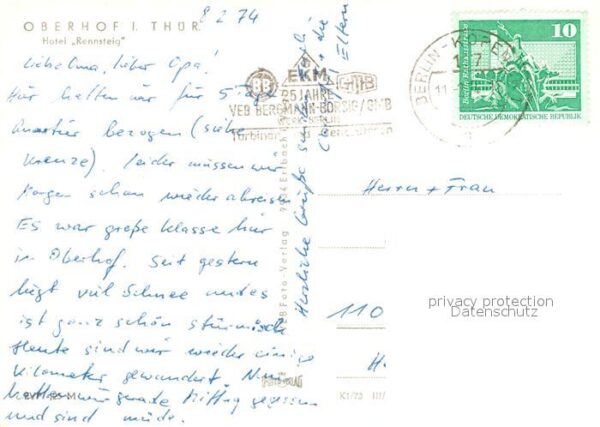 8 2 74
OBERHOF I. THÜR.
Hotel „Rennsteig"
Liebe Oma, lieber Opa!
Hier hatten wir für 5 Tage
Quartier bezogen (siehe
Kreuze). Leider müssen wir
Morgen schon wieder abreisen
Es war große Klasse hier
in Oberhof. Seit gestern
liegt viel Schnee und es
ist ganz schön stürmisch
Heute sind wir wieder einige
Kilometer gewandert. Nun
hatten wir gerade Mittag gegessen
und sind müde.
Herzliche Grüße
Eltern
EKM
GHB
25 JAHRE
VEB BERGMANN-BORSIG/GHB
BERLIN
Turbinen
Foto-Verlag
Erlbach
BERLIN-KÖPENICK
117
10
Berlin, Rathausstraße
DEUTSCHE DEMOKRATISCHE REPUBLIK
Herrn + Frau
110
privacy protection
Datenschutz
H
K1/73
III/